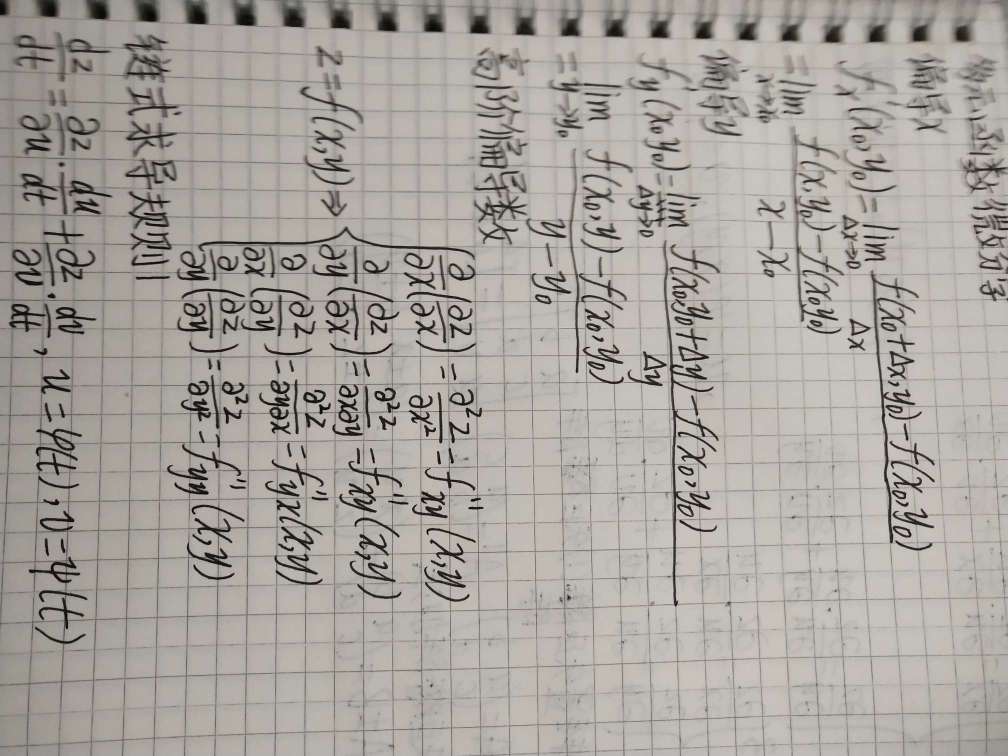 多元函数微分学
偏导x
f'x(x₀,y₀)=lim Δx→0 f(x₀+Δx,y₀)-f(x₀,y₀) / Δx
=lim x→x₀ f(x,y₀)-f(x₀,y₀) / x-x₀
偏导y
f'y(x₀,y₀)=lim Δy→0 f(x₀,y₀+Δy)-f(x₀,y₀) / Δy
=lim y→y₀ f(x₀,y)-f(x₀,y₀) / y-y₀
高阶偏导数
∂/∂x(∂z/∂x)=∂²z/∂x²=f''xy(x,y)
z=f(x,y)⇒ ∂/∂y(∂z/∂x)=∂²z/∂x∂y=f''xy(x,y)
∂/∂x(∂z/∂y)=∂²z/∂y∂x=f''yx(x,y)
∂/∂y(∂z/∂y)=∂²z/∂y²=f''yy(x,y)
链式求导规则
dz/dt=∂z/∂u·du/dt+∂z/∂v·dv/dt,u=φ(t),v=ψ(t)